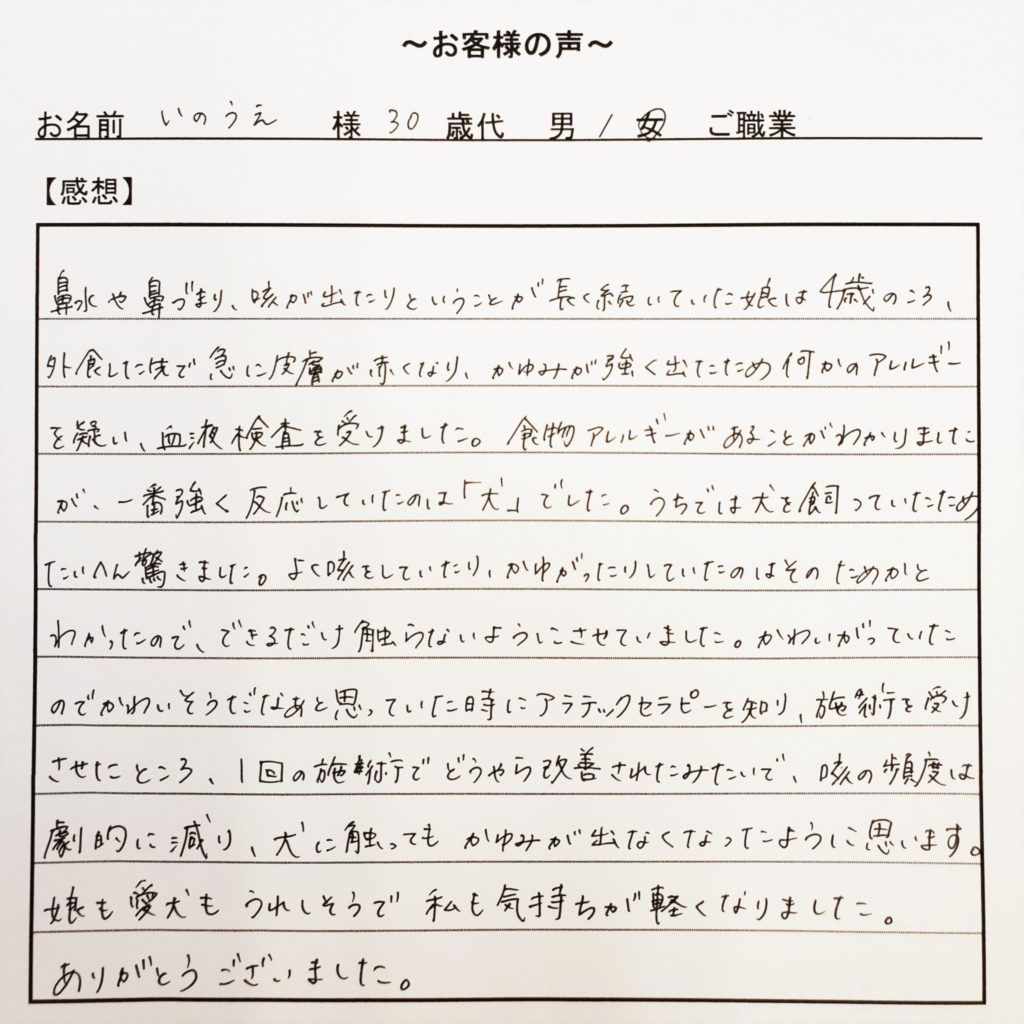 ～お客様の声～
お名前 いのうえ 様 30 歳代 男 / 女 ご職業
【感想】
鼻水や鼻づまり、咳が出たりということが長く続いていた娘は4歳のころ、
外食した先で急に皮膚が赤くなり、かゆみが強く出たため何かのアレルギー
を疑い、血液検査を受けました。食物アレルギーがあることがわかりました
が、一番強く反応していたのは「犬」でした。うちでは犬を飼っていたため
たいへん驚きました。よく咳をしていたり、かゆがったりしていたのはそのためかと
わかったので、できるだけ触らないようにさせていました。かわいがっていた
のでかわいそうだなあと思っていた時にアラテックセラピーを知り、施術を受け
させたところ、1回の施術でどうやら改善されたみたいで、咳の頻度は
劇的に減り、犬に触ってもかゆみが出なくなったように思います。
娘も愛犬もうれしそうで私も気持ちが軽くなりました。
ありがとうございました。